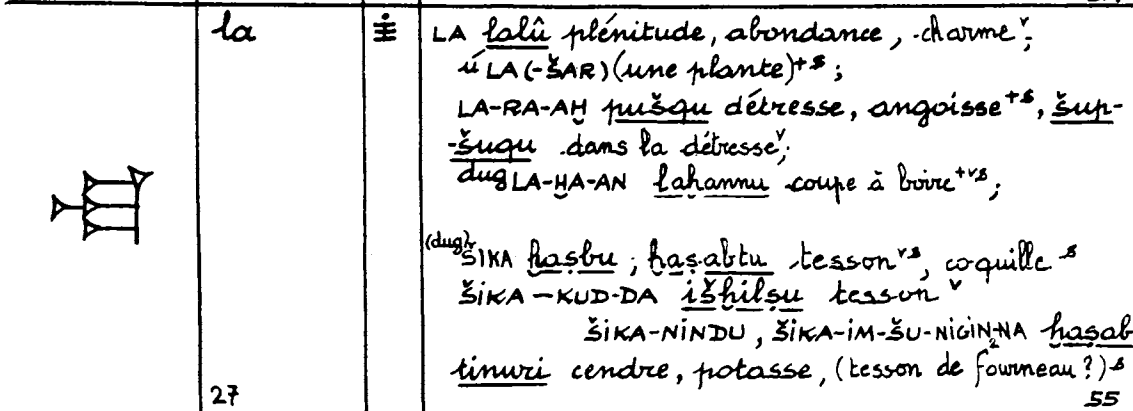 la LA lalû plénitude, abondance, charme ᵛ;
ú LA (-ŠAR) (une plante) ⁺ˢ;
LA-RA-AḪ pušqu détresse, angoisse ⁺ˢ, šup-
-šuqu dans la détresse ᵛ;
dug LA-ḪA-AN laḫannu coupe à boire ⁺ᵛˢ;
(dug) ŠIKA ḫaṣbu ; ḫaṣabtu tesson ᵛˢ, coquille ˢ
ŠIKA-KUD-DA išḫilṣu tesson ᵛ
ŠIKA-NINDU, ŠIKA-IM-ŠU-NIGIN₂-NA ḫaṣab
tinuri cendre, potasse, (tesson de fourneau ?) ˢ
27 55